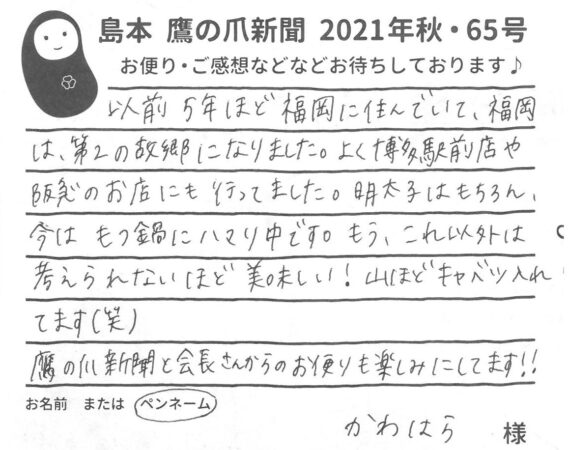 島本 鷹の爪新聞 2021年秋・65号
お便り・ご感想などなどお待ちしております♪
以前 5年ほど福岡に住んでいて、福岡
は、第2の故郷になりました。よく博多駅前店や
阪急のお店にも行ってました。明太子はもちろん、
今は もつ鍋にハマり中です。もう、これ以外は
考えられないほど美味しい!山ほどキャベツ入れ
てます(笑)
鷹の爪新聞と会長さんからのお便りも楽しみにしてます!!
お名前 または ペンネーム
かわはら 様